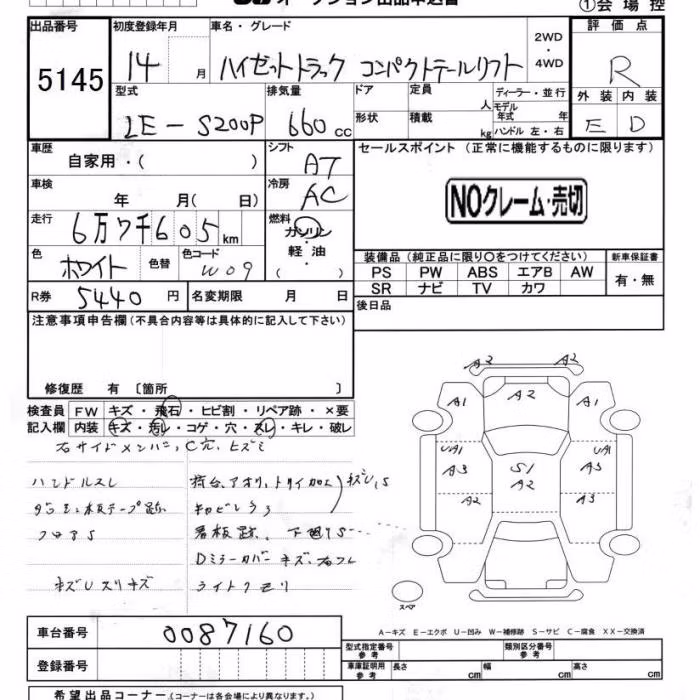 オークション出品申込書
①会場控
出品番号 初度登録年月 車名・グレード 2WD・4WD 評価点
5145 14 月 ハイゼットトラック コンパクトテールリフト R
型式 排気量 ドア 定員 人 ディーラー・並行 外装 内装
LE-S200P 660 cc 形状 積載 kg モデル年式 年 ハンドル 左・右 E D
車歴 自家用・( ) シフト AT セールスポイント (正常に機能するものに限ります)
車検 年 月( 日) 冷房 AC NOクレーム・売切
走行 6万7千605km 燃料 ガソリン・軽油・( )
色 ホワイト 色替 色コード W09 装備品(純正品に限り○をつけてください) 新車保証書
PS PW ABS エアB AW 有・無
SR ナビ TV カワ
R券 5440 円 名変期限 月 日 後日品
注意事項申告欄(不具合内容等は具体的に記入して下さい)
修復歴 有 〔箇所 〕
検査員 FW キズ・飛石・ヒビ割・リペア跡・×要
記入欄 内装 キズ・汚レ・コゲ・穴・スレ・キレ・破レ
右サイドメンバー,C穴,ヒズミ
ハンドルスレ
フロアS
荷台,アオリ,トリイ
看板跡. 下廻りS
Dミラーカバーキズ.
ライトクモリ
A2 A2
A1 A2 A1
UA1 S1 UA1
A3 A2 A3
A2 A2
スペア
A-キズ E-エクボ U-凹み W-補修跡 S-サビ C-腐食 XX-交換済
車台番号 0087160
型式指定番号 参考 類別区分番号 参考
登録番号 車庫証明用 参考 長さ cm 幅 cm 高さ cm
希望出品コーナー(コーナーは各会場により異なります。)